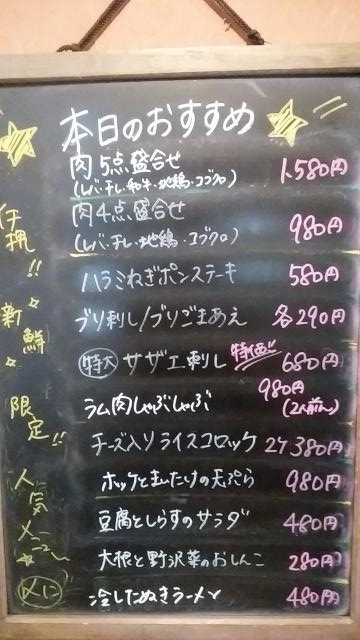 本日のおすすめ
肉5点盛合せ 1,580円
(レバ・チレ・和牛・地鶏・コブクロ)
肉4点盛合せ 980円
(レバ・チレ・地鶏・コブクロ)
ハラミねぎポンステーキ 580円
ブリ刺し/ブリごまあえ 各290円
特大 サザエ刺し 特価!! 680円
ラム肉しゃぶしゃぶ 980円
(2人前〜)
チーズ入りライスコロッケ 2ケ 380円
ホッケとまいたけの天ぷら 980円
豆腐としらすのサラダ 480円
大根と野沢菜のおしんこ 280円
冷したぬきラーメン 480円
イチ押し!!
新鮮
限定!!
人気
〆に